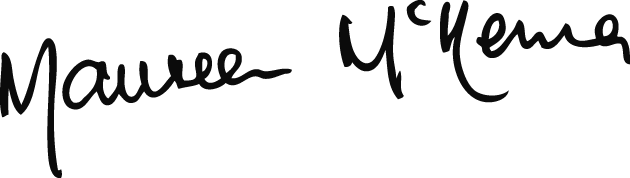 Maureen McKenna